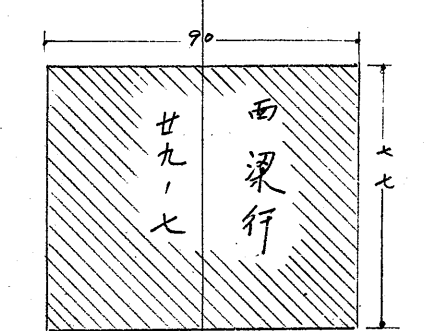 90
面梁行
廿九-七
七七